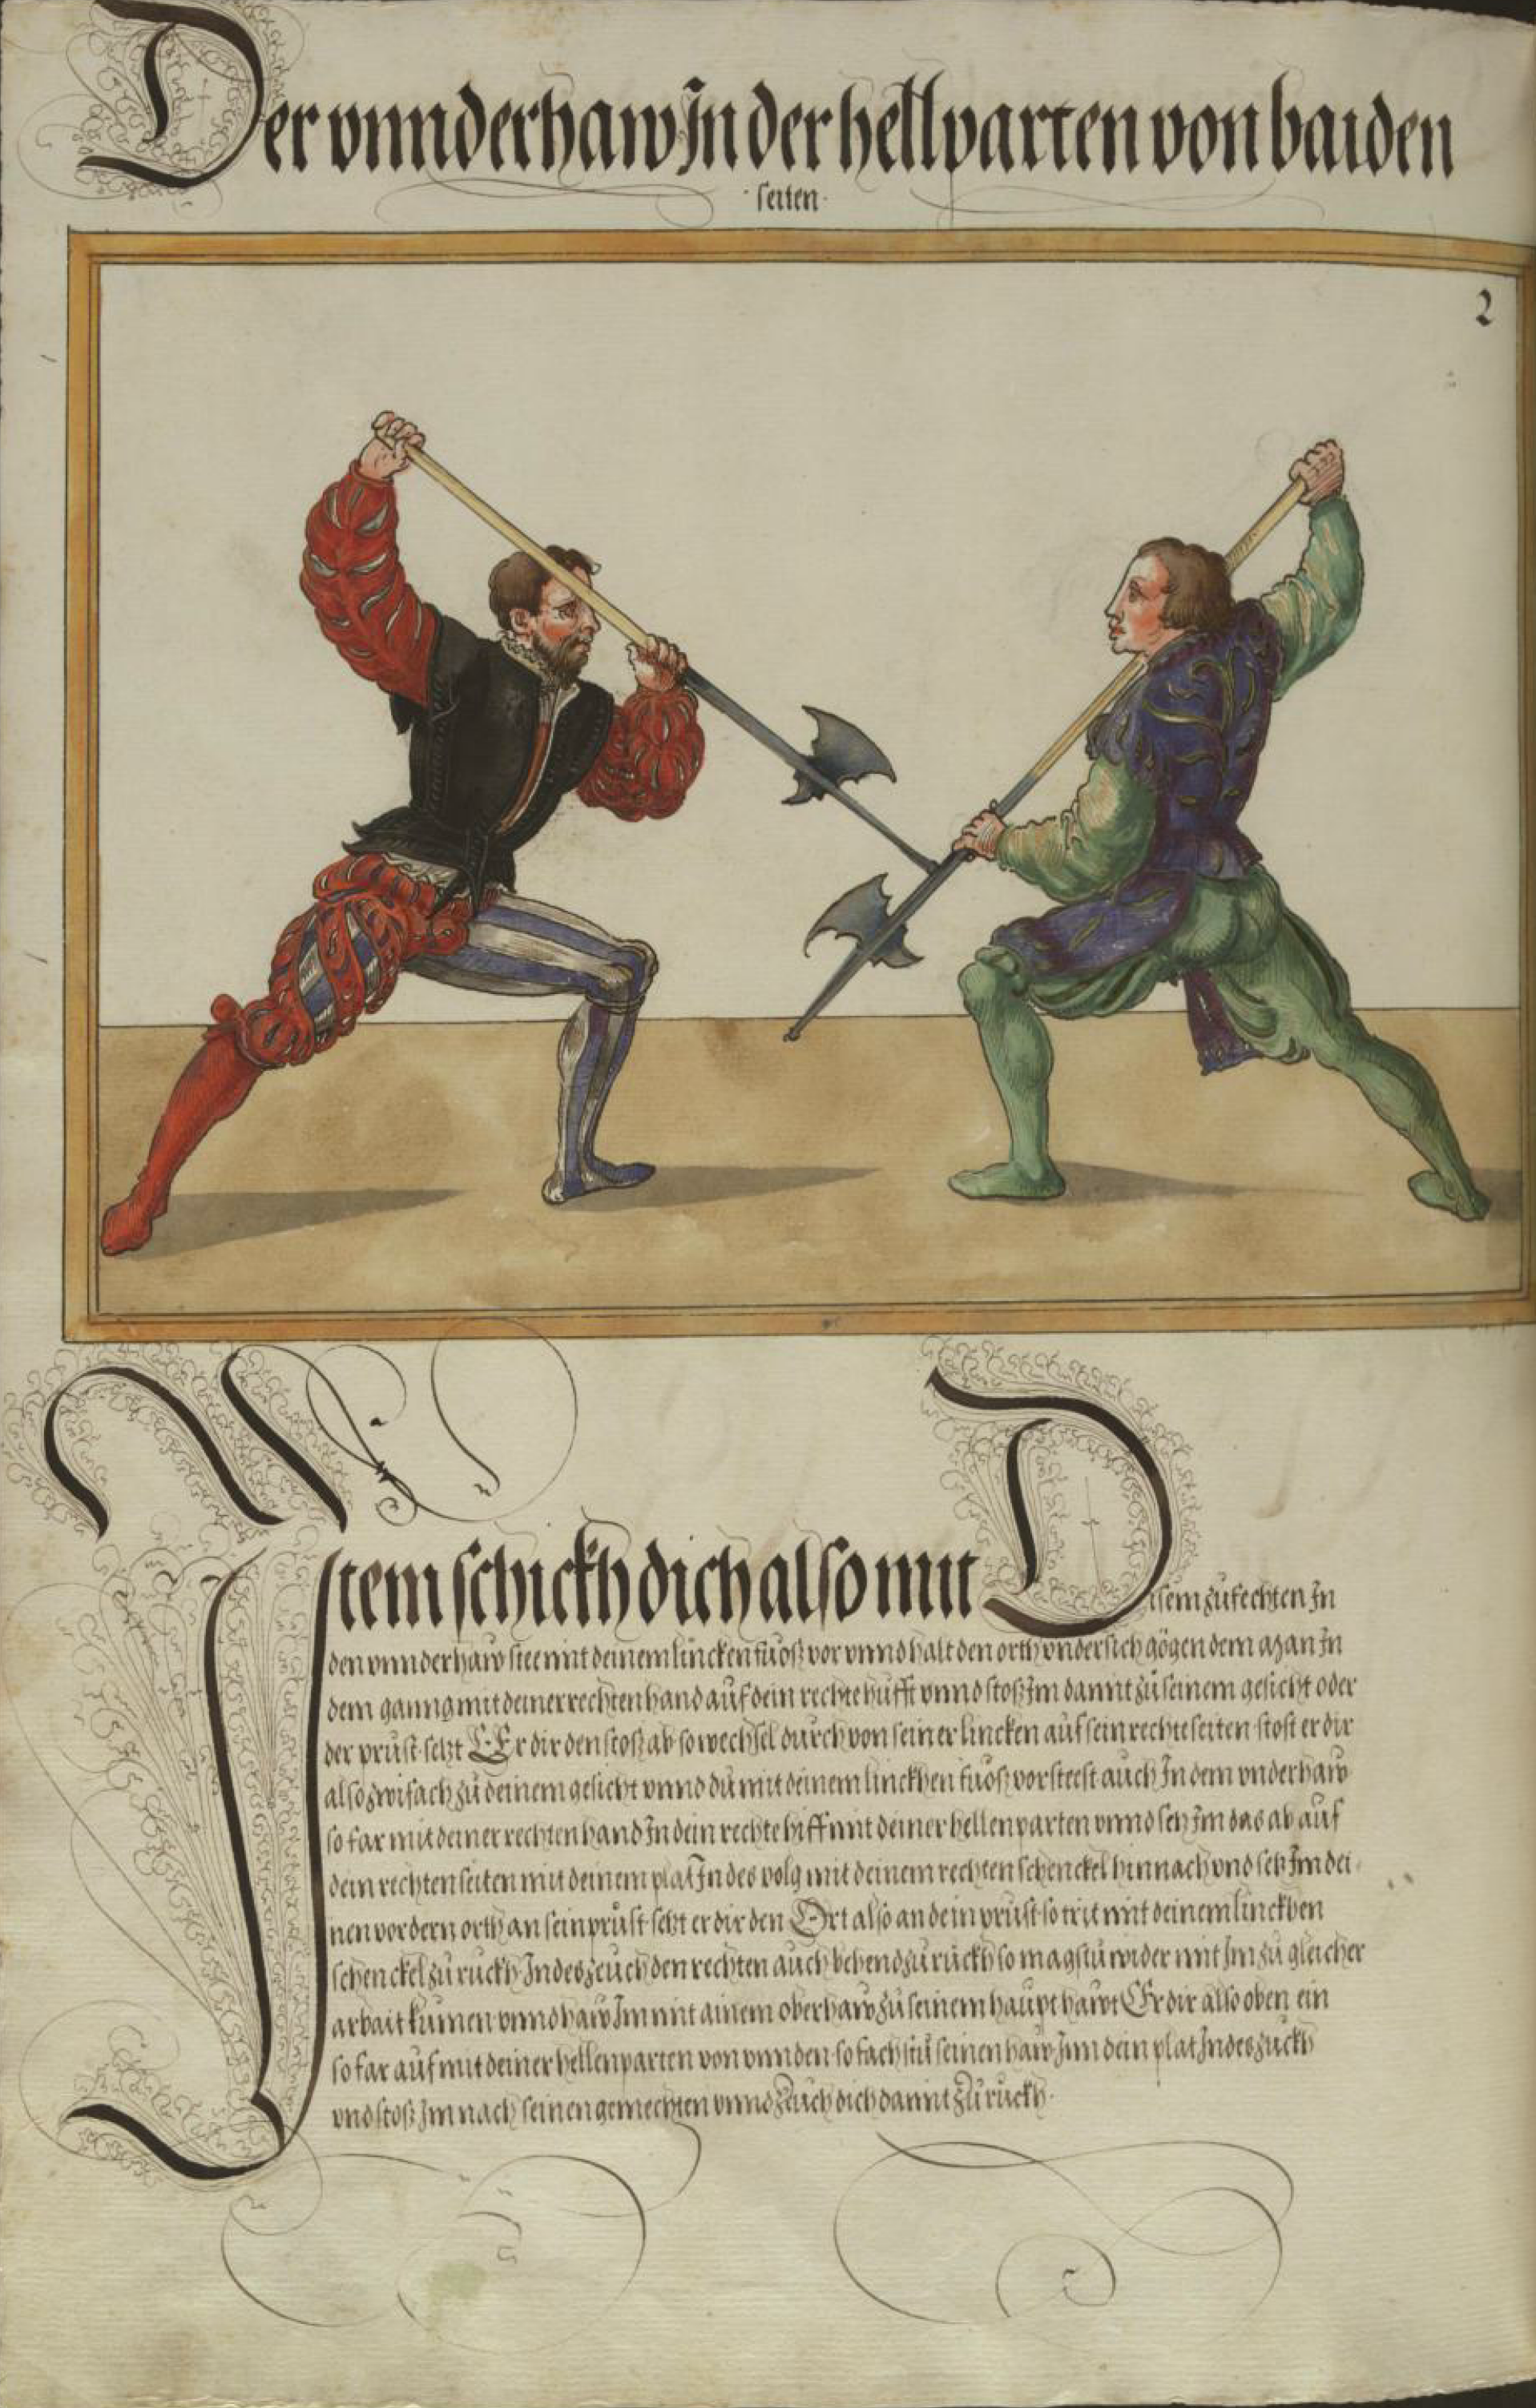 Der vnnderhaw In der hellparten von baiden
seiten
2
Item schickh dich also mit Disem zufechten In
den vnnderhaw stee mit deinem lincken fuoß vor vnnd halt den orth vndersich gögen dem man In
dem ganng mit deiner rechten hand auf dein rechte hüfft vnnd stoß Im damit zů seinem gesicht oder
der prust setzt Er dir den stoß ab so wechsel durch von seiner lincken auf sein rechte seiten stost er dir
also zwifach zů deinem gesicht vnnd du mit deinem linckhen fuoß vor steest auch In dem vnderhaw
so far mit deiner rechten hand In dein rechte hiff mit deiner hellenparten vnnd setz Im das ab auf
dein rechten seiten mit deinem plat In des volg mit deinem rechten schenckel hinnach vnd setz Im dei
nen vordern orth an sein prust setzt er dir den Ort also an dein prust so trit mit deinem linckhen
schenckel zů ruckh Indes zeuch den rechten auch behend zů ruckh so magstu wider mit Im zů gleicher
arbait kumen vnnd haw Im mit ainem oberhaw zů seinem haupt hawt Er dir also oben ein
so far auf mit deiner hellenparten von vnnden so fach stu seinen haw Inn dein plat Indes zuckh
vnd stoß Im nach seinen gemechten vnnd Zeuch dich damit Zů ruckh